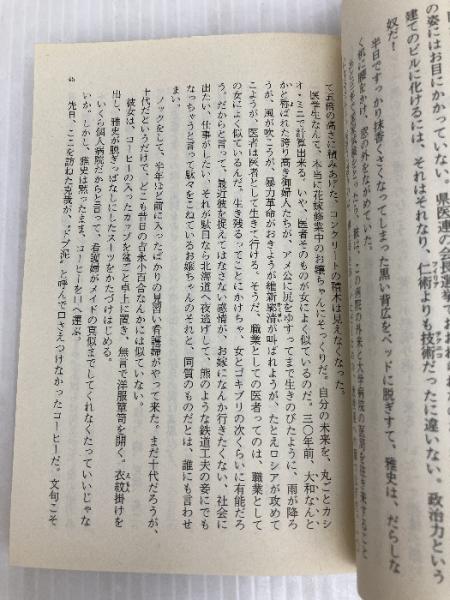 の姿にはお目にかかっていない。県医連の会長選挙、
建てのビルに化けるには、それはそれなり、仁術よりも技術だったに違いない。政治力という
奴だ！
半日ですっかり抹香くさくなってしまった黒い背広をベッドに脱ぎすて、雅史は、だらしな
く机に腰をかけ、窓の外をながめていた。
て五倍の高さに積みあげた、コンクリートの積木は見えなくなった。
医学生なんて、本当に花嫁修業中のお嬢ちゃんにそっくりだ。自分の未来を、丸ごとカシ
オ・ミニで計算出来る。いや、医者そのものが女によく似ているのだ。三〇年前、大和なんと
かと称ばれた誇り高き御婦人たちが、アメ公に尻をゆすってまで生きのびたように、雨が降ろ
うが、風が吹こうが、暴力革命がおきようが維新粛清が叫ばれようが、たとえロシアが攻めて
こようが、医者は医者として生きて行ける。そうだ、職業としての医者ってのは、職業として
の女によく似ているんだ。生き残るってことにかけちゃ、女とゴキブリの次くらいに有能だろ
う。だからと言って、最近彼を捉えてはなさない感情が、お嫁になんか行きたくない、社会に
出たい、仕事がしたい、それが駄目なら北海道へ夜逃げして、熊のような鉄道工夫の妾にでも
なっちゃうと言って駄々をこねているお嫁ちゃんのそれと、同質のものだとは、誰にも言わせ
まい。
ノックをして、半年ほど前に入ったばかりの見習い看護婦がやって来た。まだ十代だろうが、
十代だというだけで、どこも昔日の吉永小百合なんかには似ていない。
彼女は、コーヒーの入ったカップを盆ごと卓上に置き、無言で洋服簞笥を開く。衣紋掛けを
出し、雅史が脱ぎっぱなしにしたスーツをかたづけはじめる。
いくら個人病院だからと言って、看護婦がメイドの真似までしてくれなくたっていいじゃな
いか。しかし、雅史は黙ったまま、コーヒーを口へ運ぶ。
先日、ここを訪ねた克哉が、“ドブ泥”と呼んで口さえつけなかったコーヒーだ。文句こそ